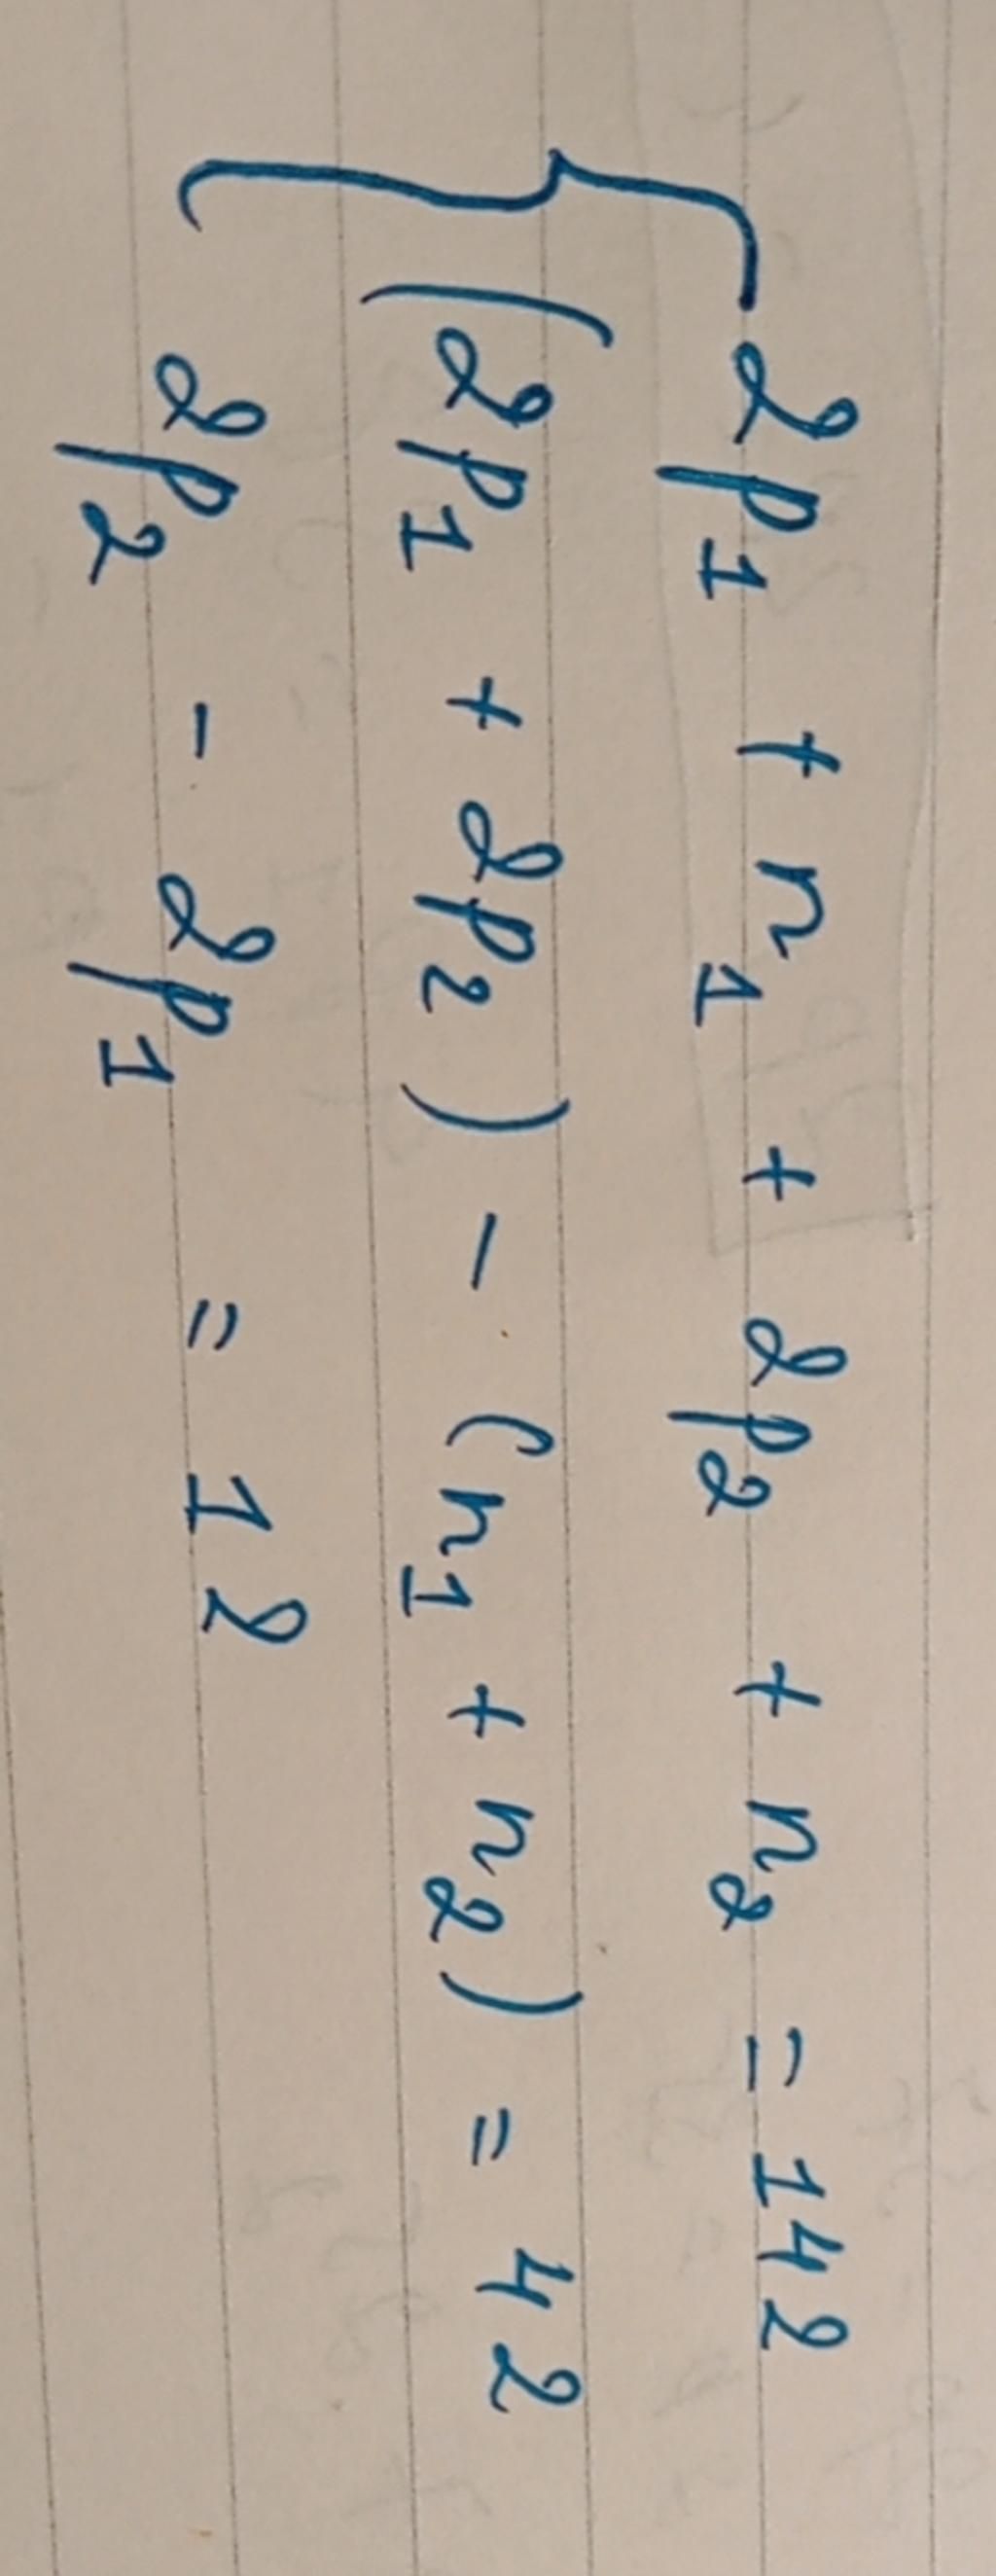 2p₁ + n₁ + 2p₂ + n₂ = 142
(2p₁ + 2p₂) - (n₁ + n₂) = 42
2p₂ - 2p₁ = 12